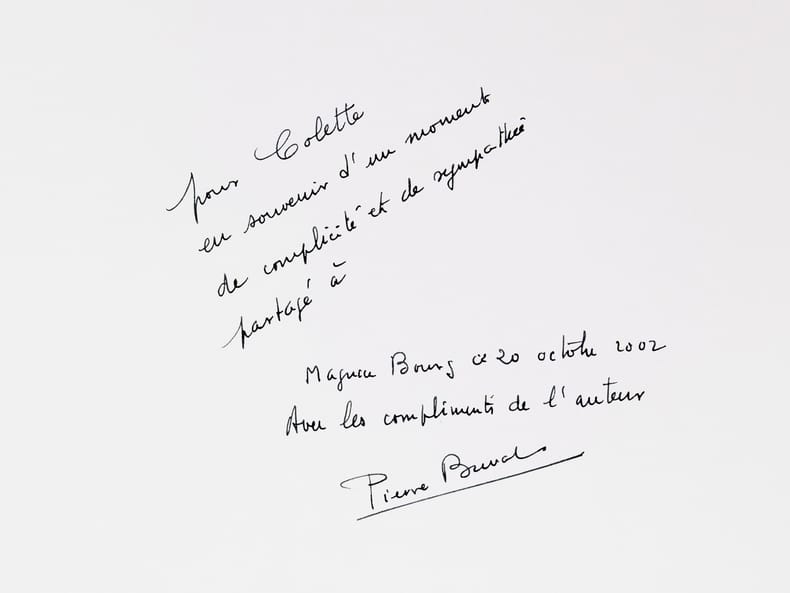 pour Colette
en souvenir d'un moment
de complicité et de sympathie
partagé à
Magnac Bourg ce 20 octobre 2002
Avec les compliments de l'auteur
Pierre